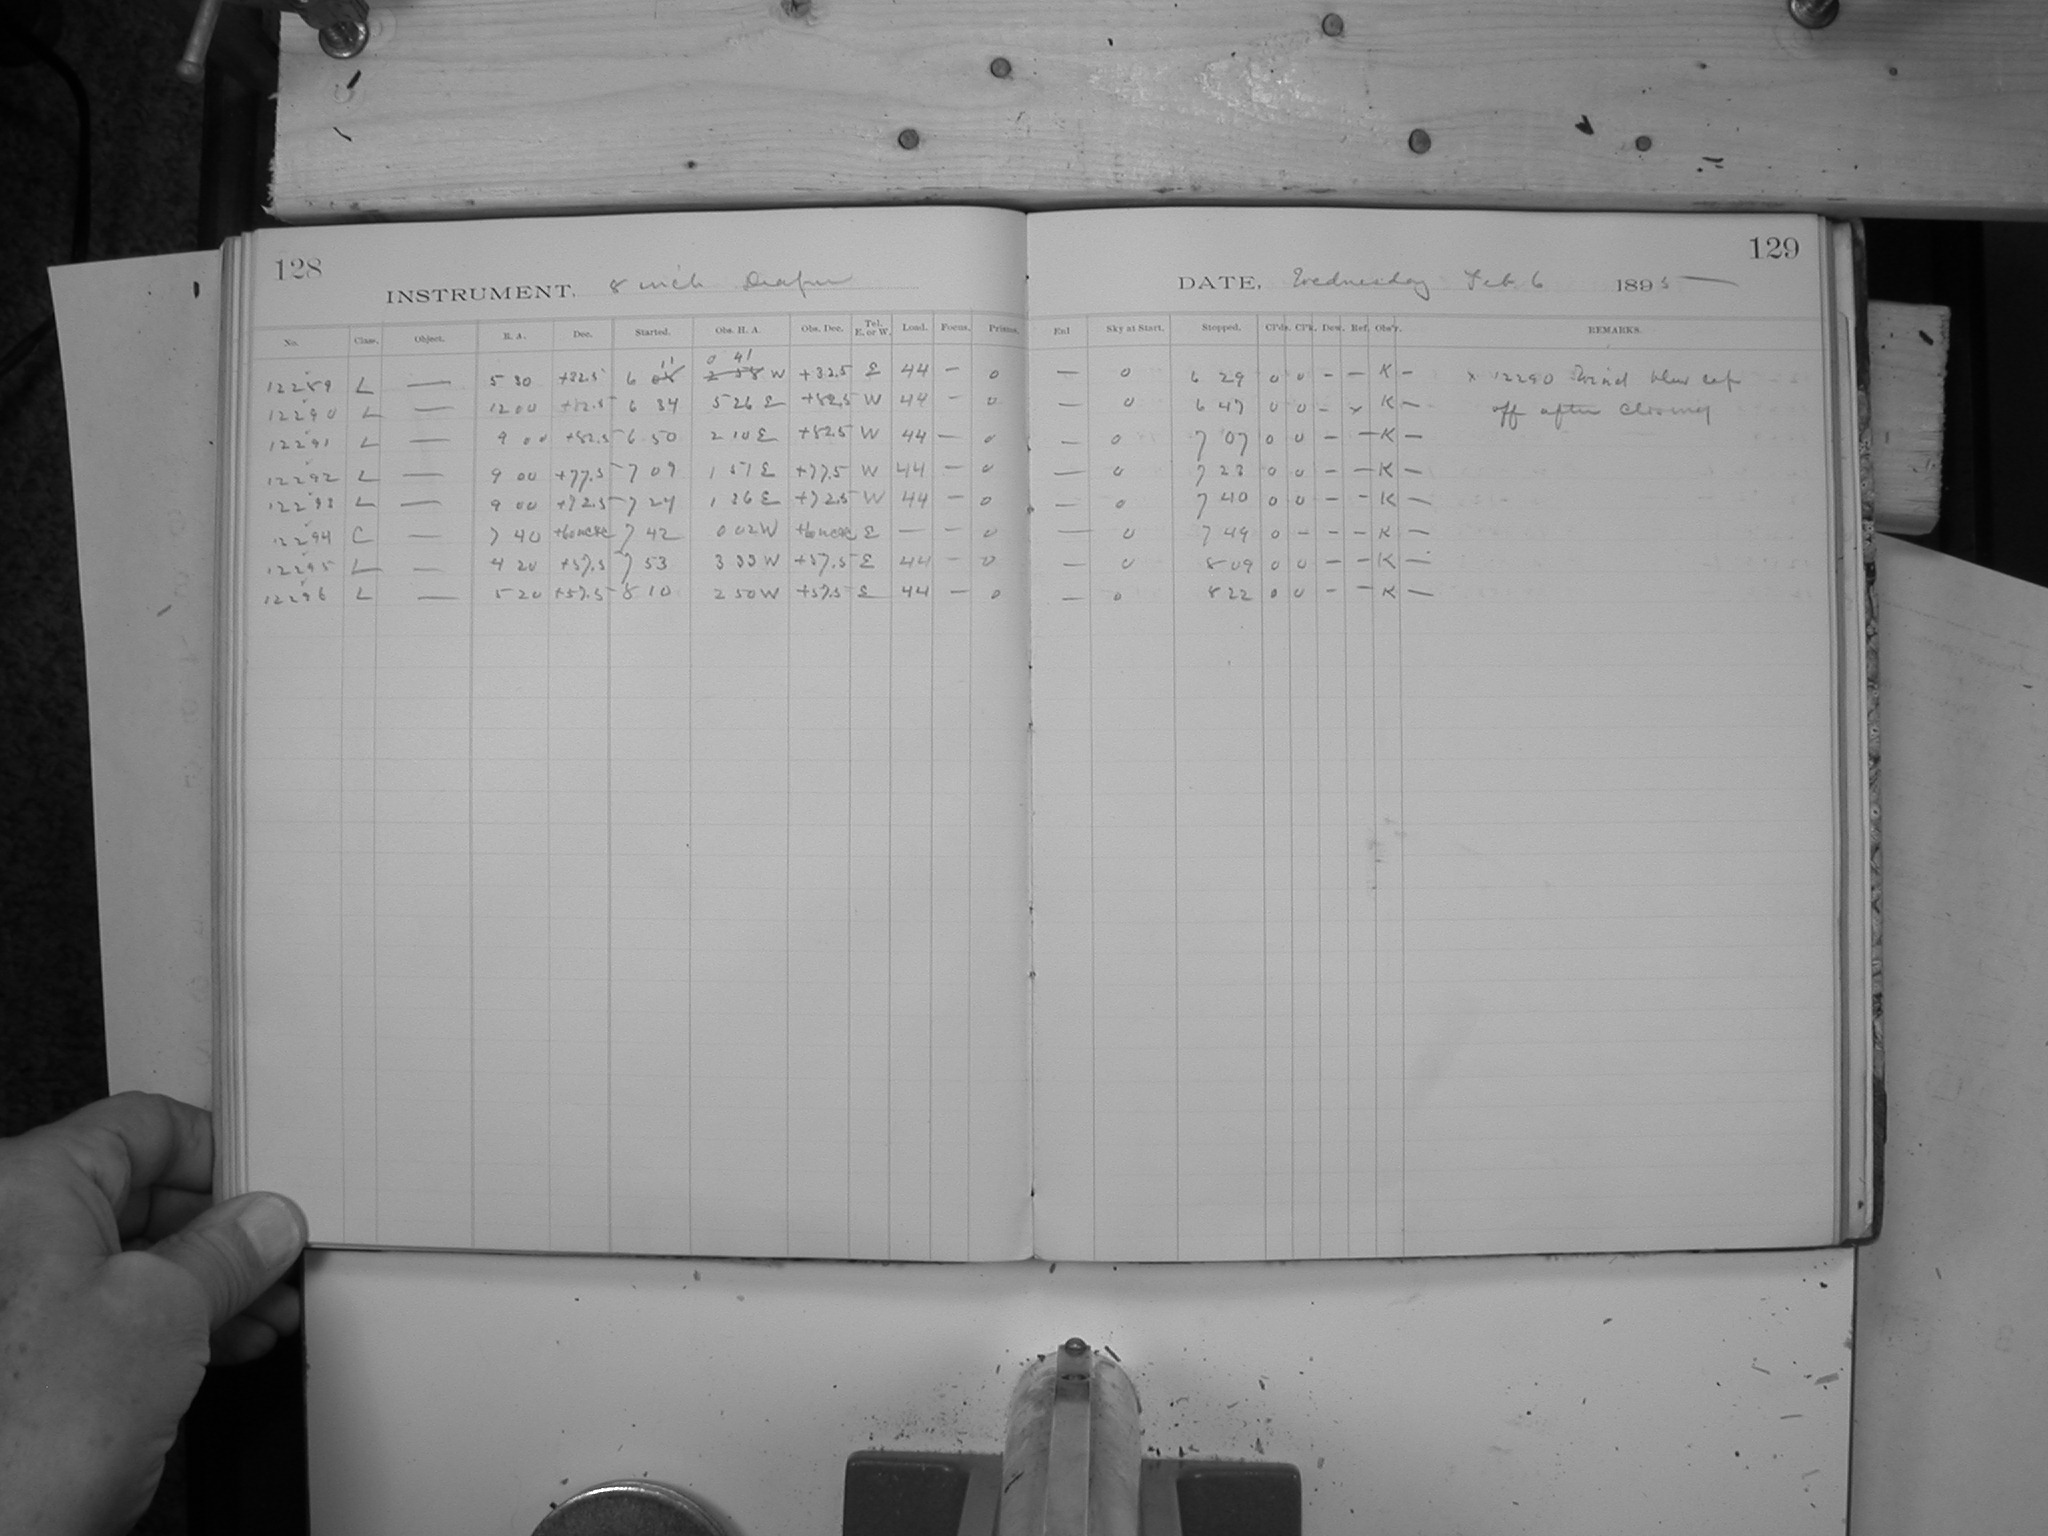 128
INSTRUMENT, 8 inch Draper
No. Class. Object. R. A. Dec. Started. Obs. H. A. Obs. Dec. Tel. E. or W. Load. Focus. Prisms.
12289 L — 5 30 +32.5 6 11 0 41 W +32.5 E 44 — 0
12290 L — 12 00 +82.5 6 34 5 26 E +82.5 W 44 — 0
12291 L — 9 00 +82.5 6 50 2 10 E +82.5 W 44 — 0
12292 L — 9 00 +77.5 7 09 1 51 E +77.5 W 44 — 0
12293 L — 9 00 +72.5 7 24 1 36 E +72.5 W 44 — 0
12294 C — 7 40 7 42 0 02 W E — — 0
12295 L — 4 20 +57.5 7 53 3 33 W +57.5 E 44 — 0
12296 L — 5 20 +57.5 8 10 2 50 W +57.5 E 44 — 0
129
DATE, Wednesday Feb 6 1895
Enl Sky at Start. Stopped. Cl'ds. Cl'k. Dew. Ref. Obs'r. REMARKS.
— 0 6 29 0 0 – – K – x 12290 Wind blew cap
— 0 6 47 0 0 – x K – off after closing
— 0 7 07 0 0 – – K –
— 0 7 23 0 0 – – K –
— 0 7 40 0 0 – – K –
— 0 7 49 0 – – – K –
— 0 8 09 0 0 – – K –
— 0 8 22 0 0 – – K –